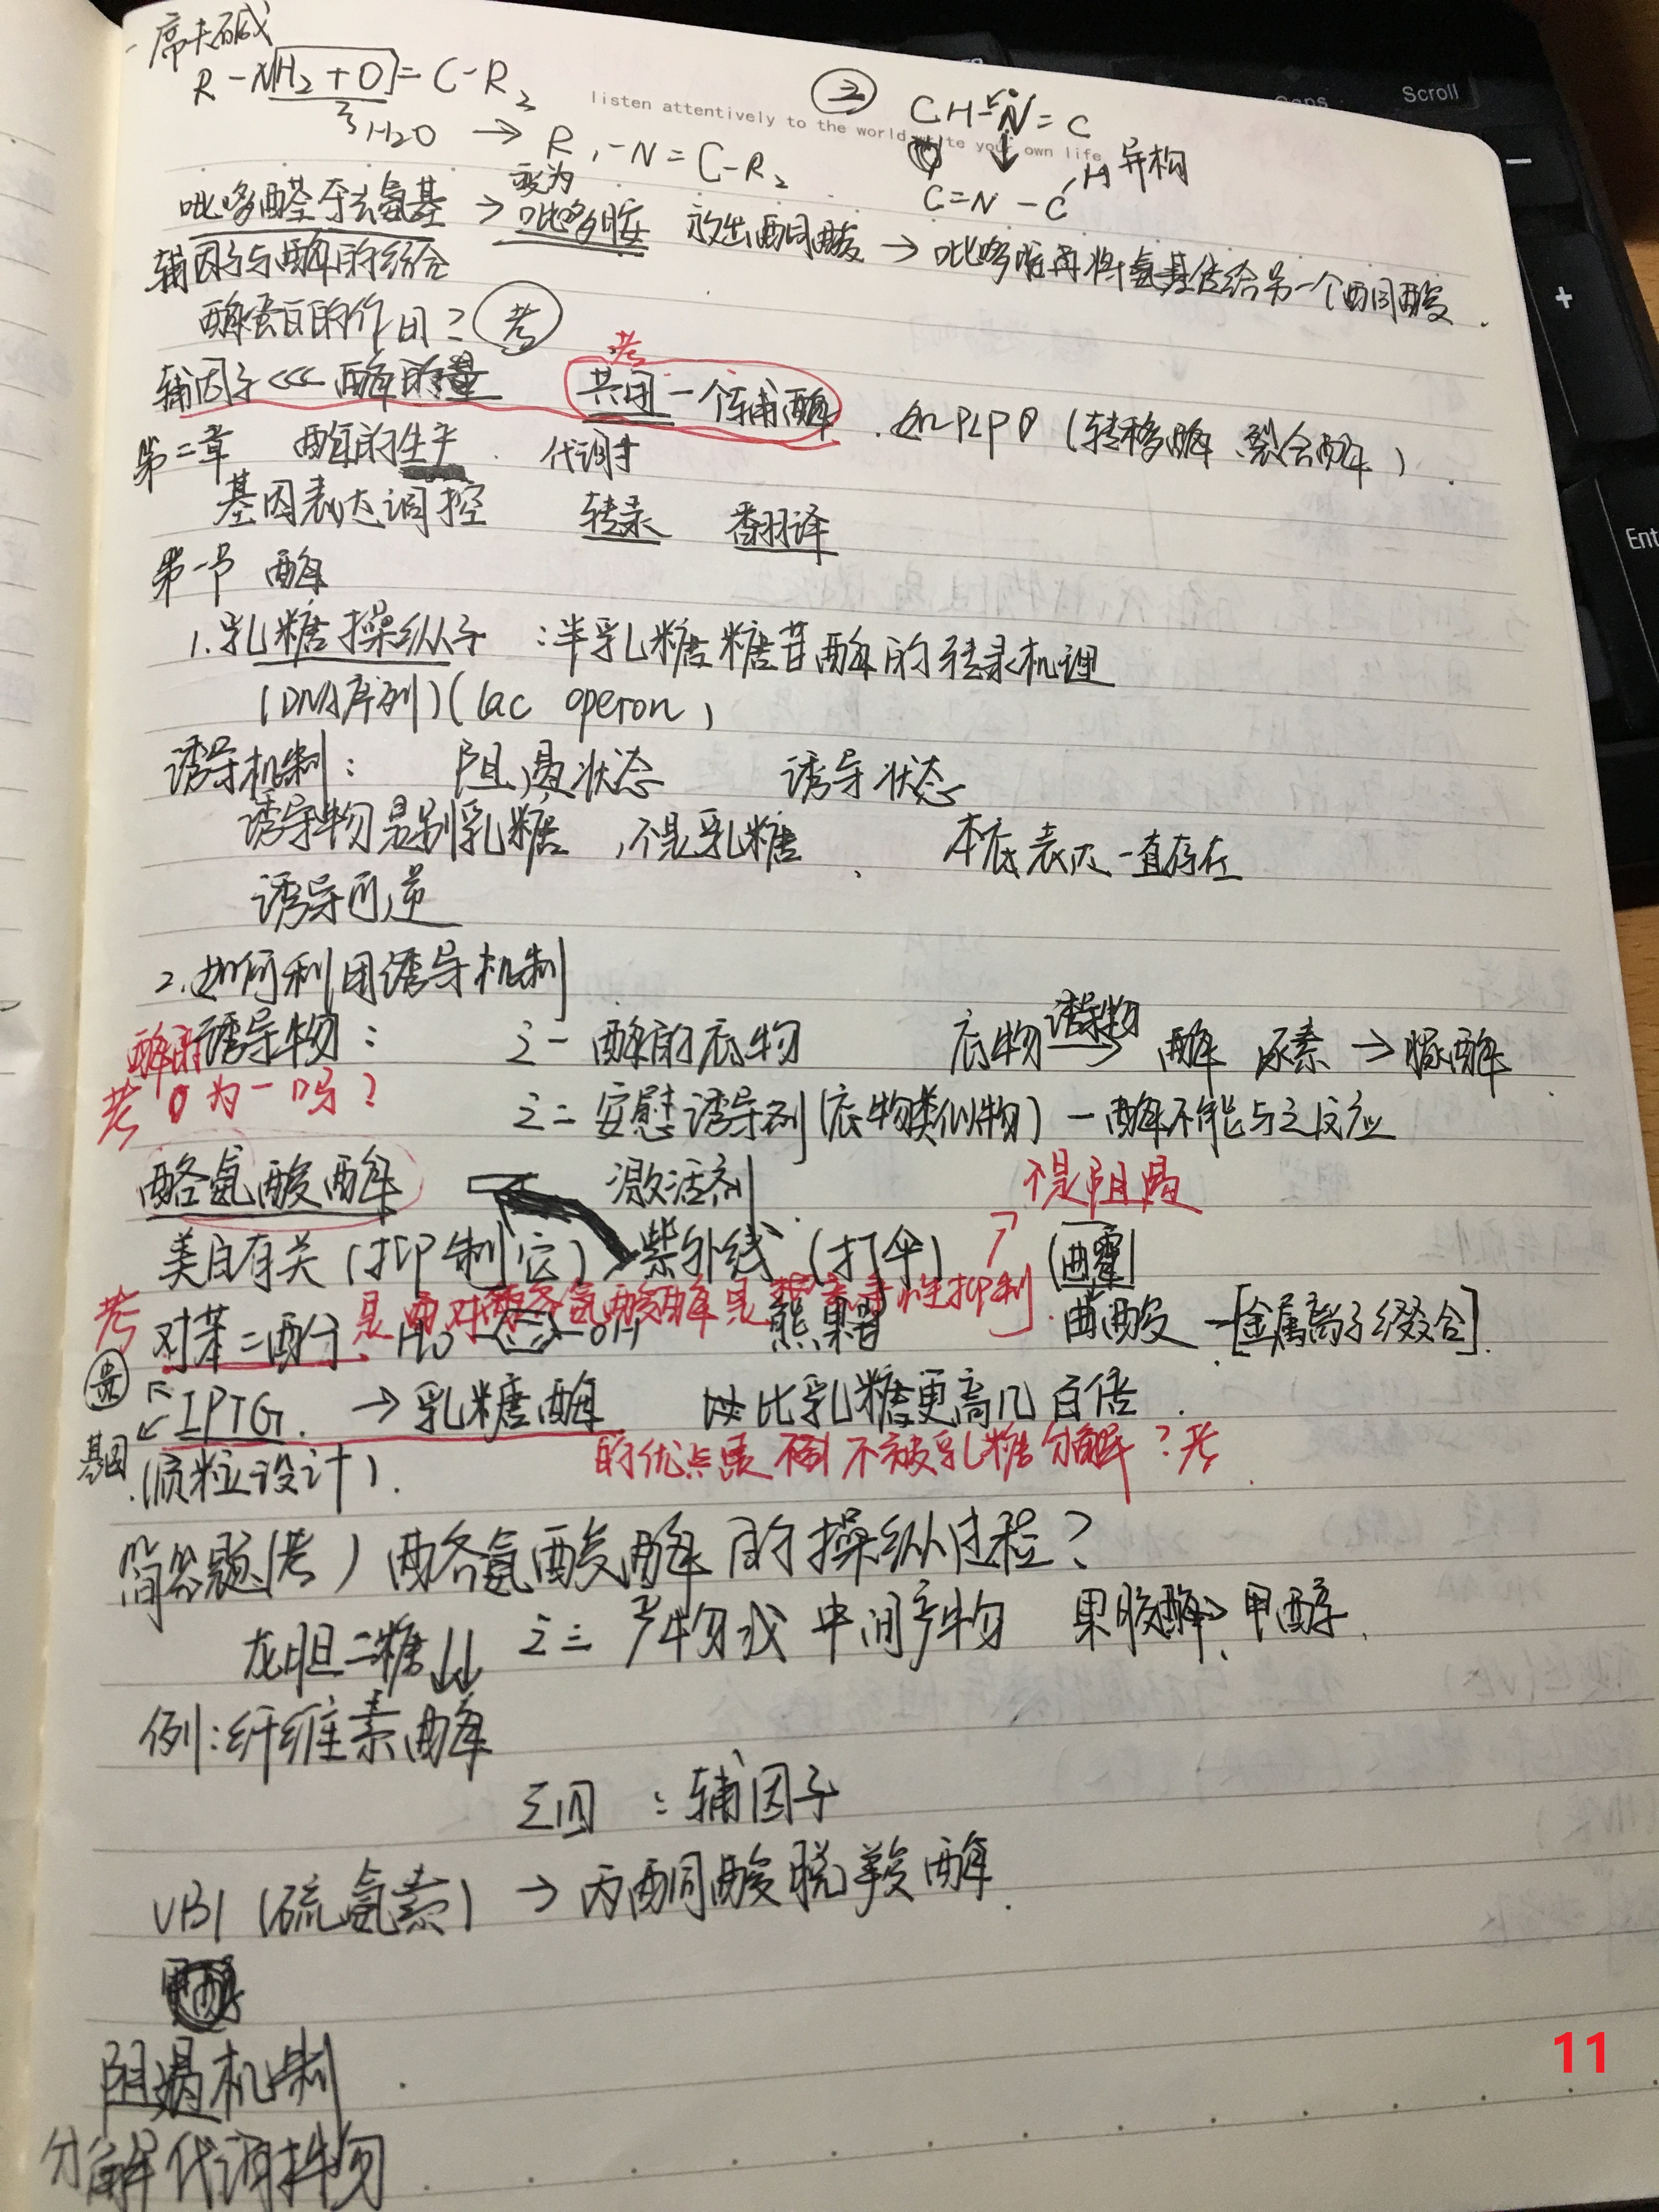 席夫碱
R-NH₂+O=C-R₂
H₂O → R₁-N=C-R₂
listen attentively to the world write your own life
② CH-N=C
C=N-C H 异构
吡哆醛于去氨基 → 变为 吡哆胺 放出酮酸 → 吡哆胺再将氨基传给另一个酮酸.
辅因子与酶的结合
酶蛋白的作用? 考
辅因子<<<酶的量 考 共用一个辅酶. 如PLP (转移酶、裂合酶).
第二章 酶的生产. 代谢
基因表达调控 转录 翻译
第一节 酶
1.乳糖操纵子:半乳糖糖苷酶的转录机理
(DNA序列)(lac operon)
诱导机制: 阻遏状态 诱导状态
诱导物是别乳糖,不是乳糖. 本底表达一直存在
诱导可逆
2.如何利用诱导机制
酶的诱导物: 之一 酶的底物 底物 诱导物→ 酶 尿素→脲酶
考 为一吗?
之二 安慰诱导剂(底物类似物)-酶不能与之反应
酪氨酸酶 激活剂 不是阻遏
美白有关(抑制它) 紫外线(打伞) (曲霉)
考 对苯二酚 HO OH 熊果苷 曲酸-[金属离子缀合].
是 对酪氨酸酶是 性抑制
贵 IPTG. → 乳糖酶 比乳糖更高几百倍.
基因 (质粒设计). 的优点是 不被乳糖分解?考.
简答题(考)酪氨酸酶的操纵过程?
龙胆二糖↓↓ 之三 产物或中间产物 果胶酶→甲醇.
例:纤维素酶
之四:辅因子
VB1(硫氨素)→丙酮酸脱羧酶.
阻遏机制.
分解代谢物
11